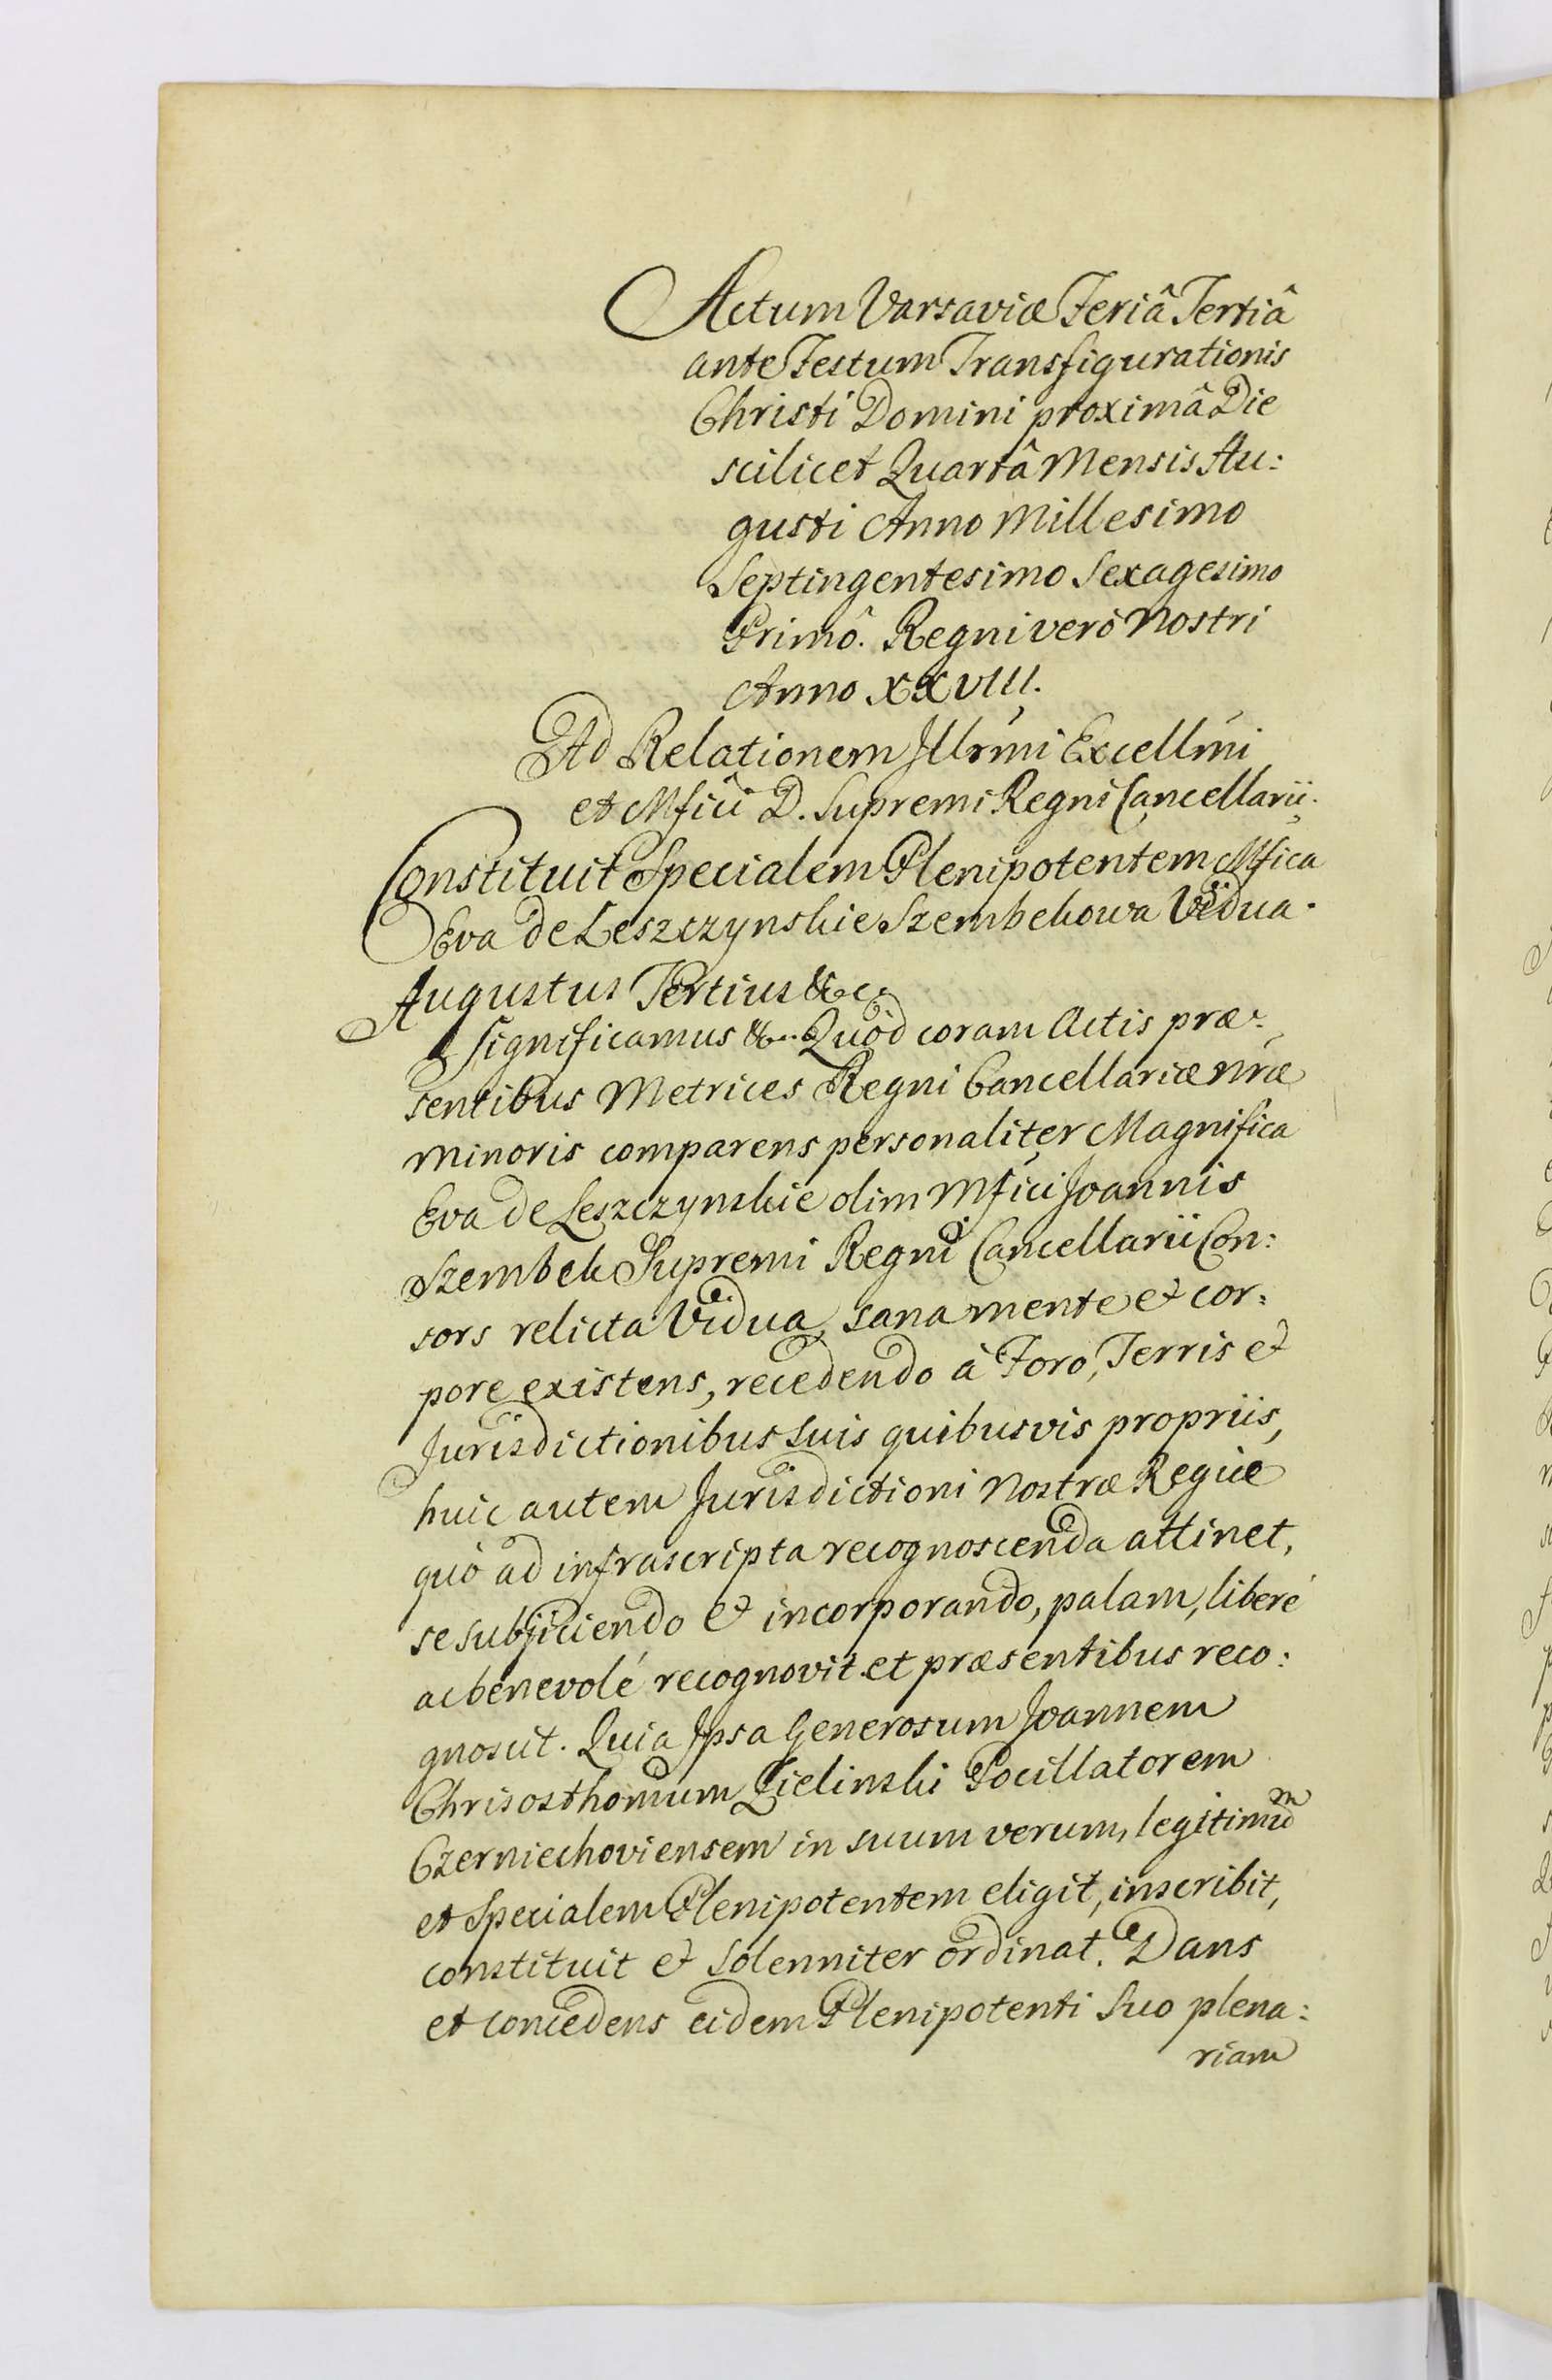 Actum Varsaviæ Feriâ Tertiâ
ante Festum Transfigurationis
Christi Domini proximâ Die
scilicet Quartâ Mensis Au:
gusti Anno Millesimo
Septingentesimo Sexagesimo
Primô. Regni verò Nostri
Anno XXVIII.
Ad Relationem Illrmi Excellmi
et Mfici D. Supremi Regni Cancellarii.
Constituit Specialem Plenipotentem Mfica
Eva de Leszczynskie Szembekowa Vidua.
Augustus Tertius &c.
Significamus &c. Quòd coram Actis præ:
sentibus Metrices Regni Cancellariæ nræ
Minoris comparens personaliter Magnifica
Eva de Leszczynskie olim Mfici Joannis
Szembek Supremi Regni Cancellarii Con:
sors relicta Vidua, sana mente et cor:
pore existens, recedendo à Foro, Terris et
Jurisdictionibus suis quibusvis propriis,
huic autem Jurisdictioni Nostræ Regiæ
quò ad infrascripta recognoscenda attinet,
se subjiciendo et incorporando, palam, liberé
ac benevolé recognovit et præsentibus reco:
gnoscit. Quia Ipsa Generosum Joannem
Chrisosthomum Zielinski Pocillatorem
Czerniechoviensem in suum verum, legitimum
et Specialem Plenipotentem eligit, inscribit,
constituit et solenniter ordinat. Dans
et concedens eidem Plenipotenti suo plena:
riam